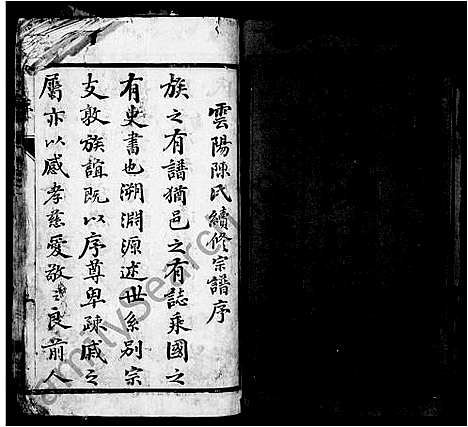 雲陽陳氏續修宗譜序
族之有譜猶邑之有誌乘國之
有史書也溯淵源述世系別宗
支敦族誼既以序尊卑疎戚之
屬亦以感孝慈愛敬之良前人
FamilySearch